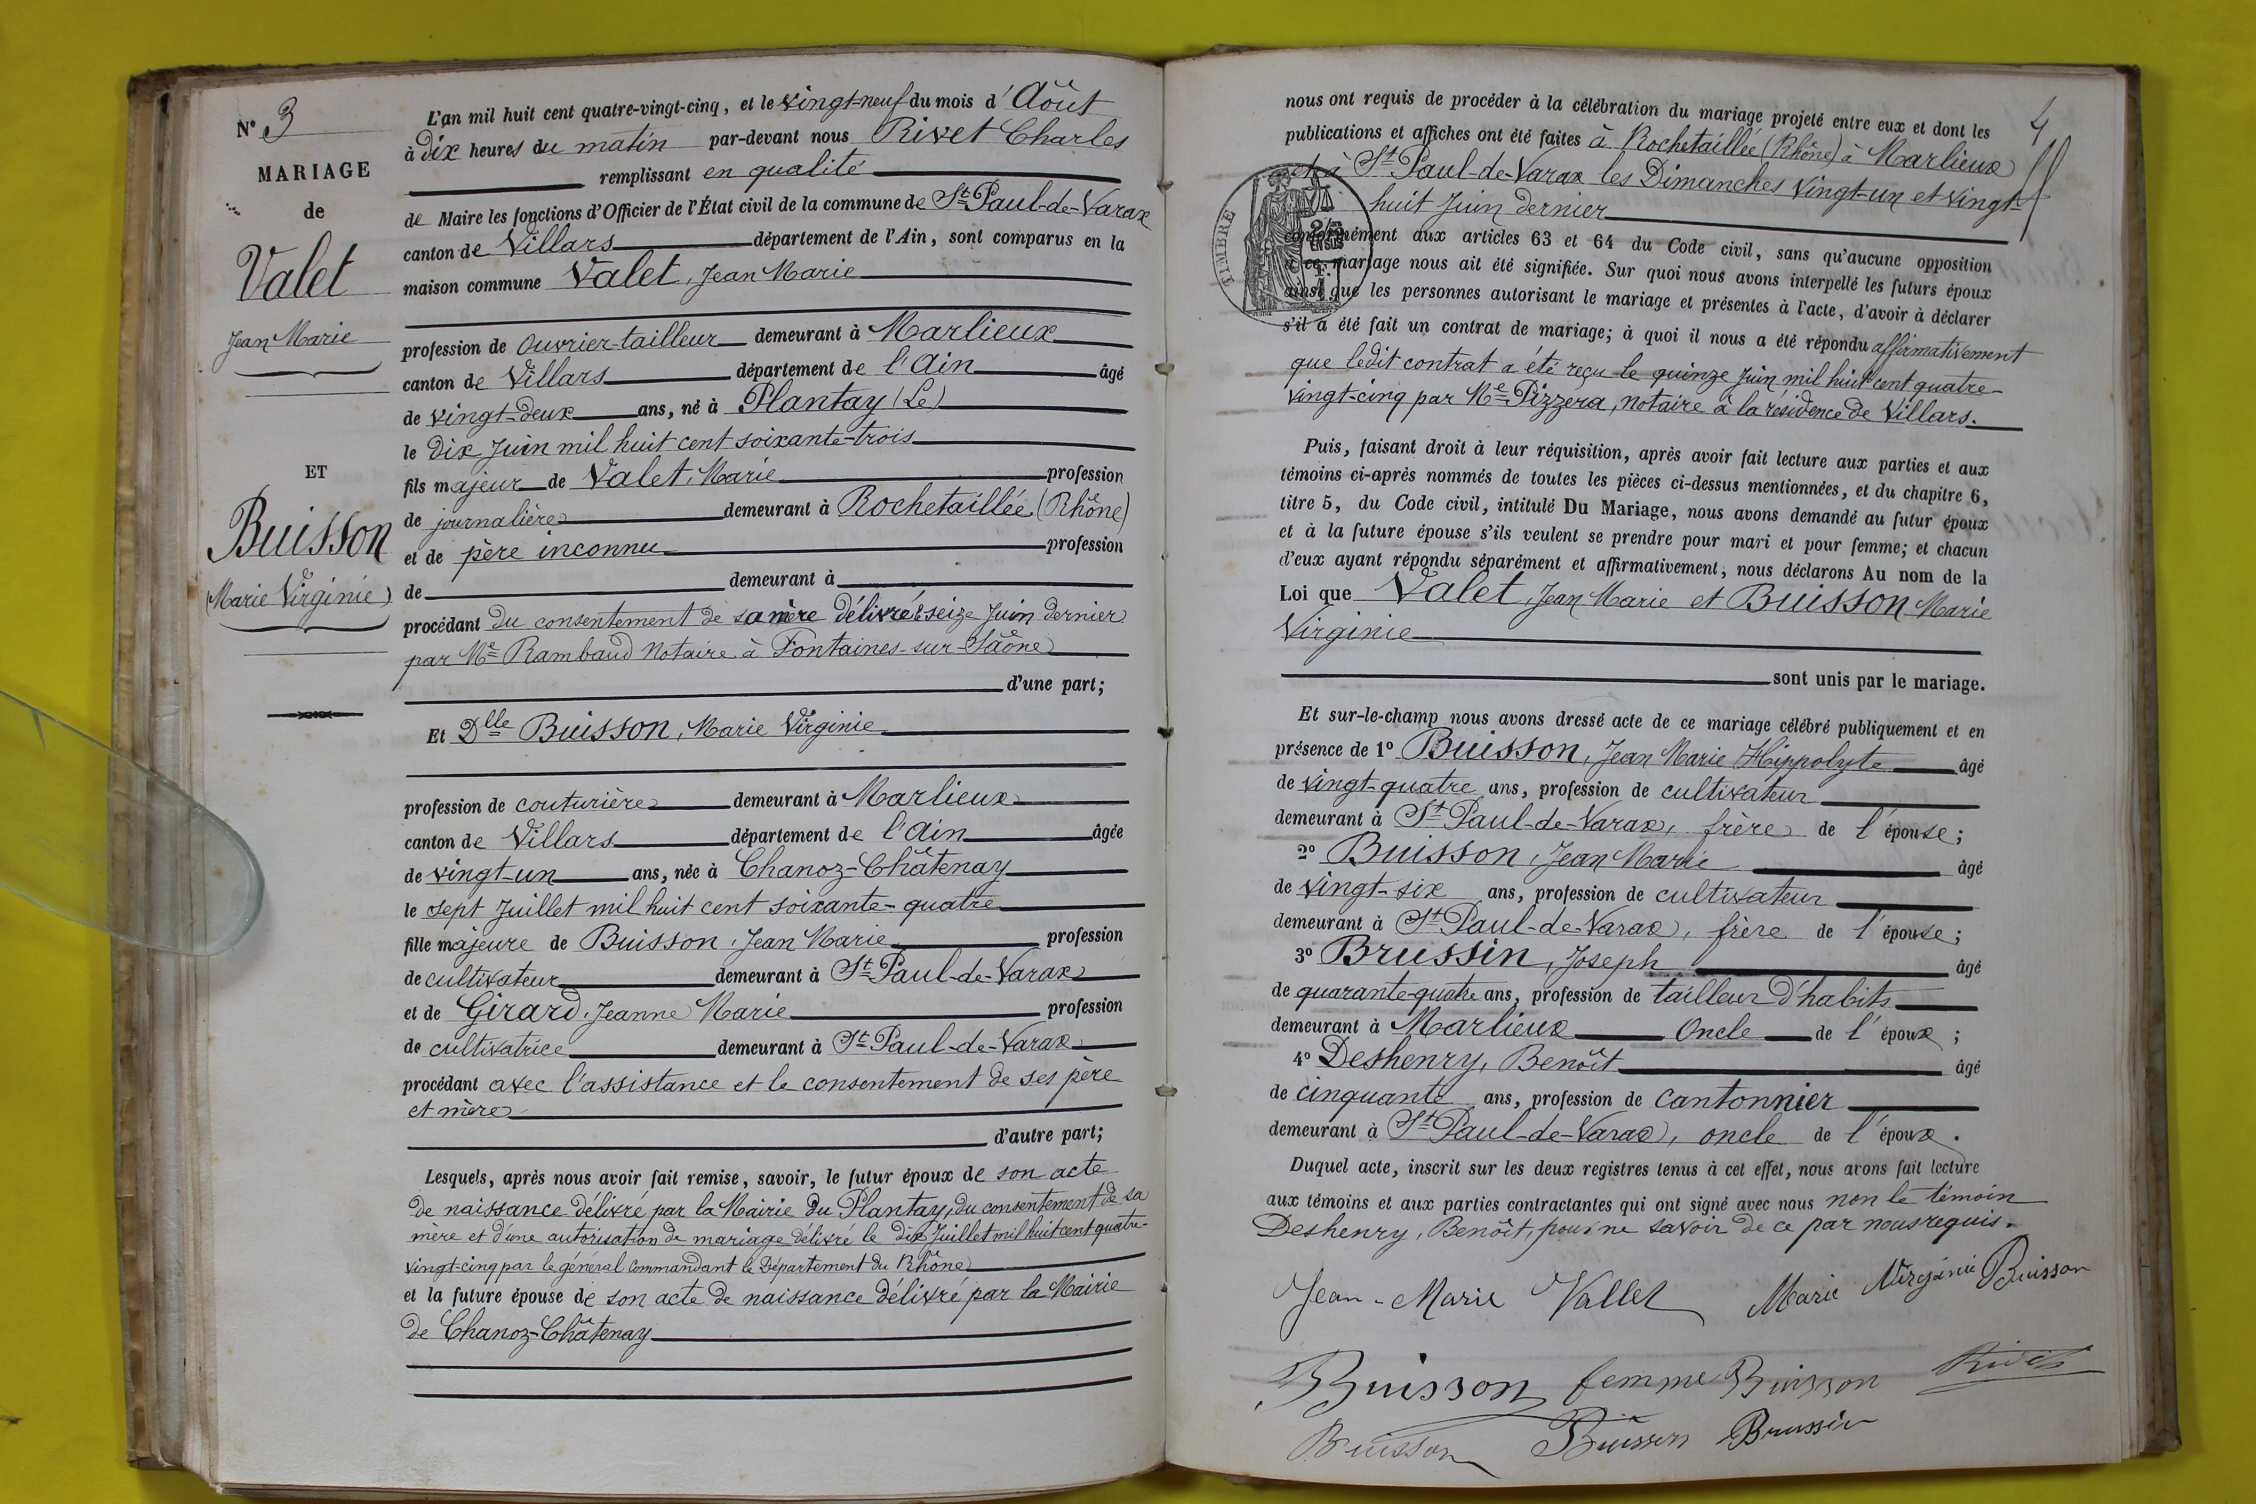 N° 3
MARIAGE
de
Valet
Jean Marie
ET
Buisson
(Marie Virginie)
L'an mil huit cent quatre-vingt-cinq, et le vingt-neuf du mois d'Août
à dix heures du matin par-devant nous Rivet Charles
remplissant en qualité
de Maire les fonctions d'Officier de l'État civil de la commune de St Paul-de-Varax
canton de Villars département de l'Ain, sont comparus en la
maison commune Valet, Jean Marie
profession de Ouvrier-tailleur demeurant à Marlieux
canton de Villars département de l'Ain âgé
de vingt-deux ans, né à Plantay (Le)
le dix Juin mil huit cent soixante-trois
fils majeur de Valet, Marie profession
de journalière demeurant à Rochetaillée (Rhône)
et de père inconnu profession
de demeurant à
procédant du consentement de sa mère délivré le seize Juin dernier
par Me Rambaud Notaire à Fontaines-sur-Saône
d'une part;
Et Dlle Buisson, Marie Virginie
profession de couturière demeurant à Marlieux
canton de Villars département de l'Ain âgée
de vingt-un ans, née à Chanoz-Châtenay
le sept Juillet mil huit cent soixante-quatre
fille majeure de Buisson, Jean Marie profession
de cultivateur demeurant à St Paul-de-Varax
et de Girard, Jeanne Marie profession
de cultivatrice demeurant à St Paul-de-Varax
procédant avec l'assistance et le consentement de ses père
et mère
d'autre part;
Lesquels, après nous avoir fait remise, savoir, le futur époux de son acte
de naissance délivré par la Mairie du Plantay, du consentement de sa
mère et d'une autorisation de mariage délivré le dix Juillet mil huit cent quatre-
vingt-cinq par le général commandant le Département du Rhône
et la future épouse de son acte de naissance délivré par la Mairie
de Chanoz-Châtenay
4
nous ont requis de procéder à la célébration du mariage projeté entre eux et dont les
publications et affiches ont été faites à Rochetaillée (Rhône) à Marlieux
et à St Paul-de-Varax les Dimanches vingt-un et vingt-
huit Juin dernier
TIMBRE
conformément aux articles 63 et 64 du Code civil, sans qu'aucune opposition
à ce mariage nous ait été signifiée. Sur quoi nous avons interpellé les futurs époux
ainsi que les personnes autorisant le mariage et présentes à l'acte, d'avoir à déclarer
s'il a été fait un contrat de mariage; à quoi il nous a été répondu affirmativement
que ledit contrat a été reçu le quinze Juin mil huit cent quatre-
vingt-cinq par Me Pizzera, notaire à la résidence de Villars.
Puis, faisant droit à leur réquisition, après avoir fait lecture aux parties et aux
témoins ci-après nommés de toutes les pièces ci-dessus mentionnées, et du chapitre 6,
titre 5, du Code civil, intitulé Du Mariage, nous avons demandé au futur époux
et à la future épouse s'ils veulent se prendre pour mari et pour femme; et chacun
d'eux ayant répondu séparément et affirmativement, nous déclarons Au nom de la
Loi que Valet, Jean Marie et Buisson Marie
Virginie
sont unis par le mariage.
Et sur-le-champ nous avons dressé acte de ce mariage célébré publiquement et en
présence de 1° Buisson, Jean Marie Hippolyte âgé
de vingt-quatre ans, profession de cultivateur
demeurant à St Paul-de-Varax, frère de l'épouse;
2° Buisson, Jean Marie âgé
de vingt-six ans, profession de cultivateur
demeurant à St Paul-de-Varax, frère de l'épouse;
3° Brussin, Joseph âgé
de quarante-quatre ans, profession de tailleur d'habits
demeurant à Marlieux Oncle de l'époux;
4° Deshenry, Benoît âgé
de cinquante ans, profession de cantonnier
demeurant à St Paul-de-Varax, oncle de l'époux.
Duquel acte, inscrit sur les deux registres tenus à cet effet, nous avons fait lecture
aux témoins et aux parties contractantes qui ont signé avec nous non le témoin
Deshenry, Benoît, pour ne savoir de ce par nous requis.
Jean-Marie Vallet Marie Virginie Buisson
Buisson femme Buisson Rivet
Buisson Buisson Brussin